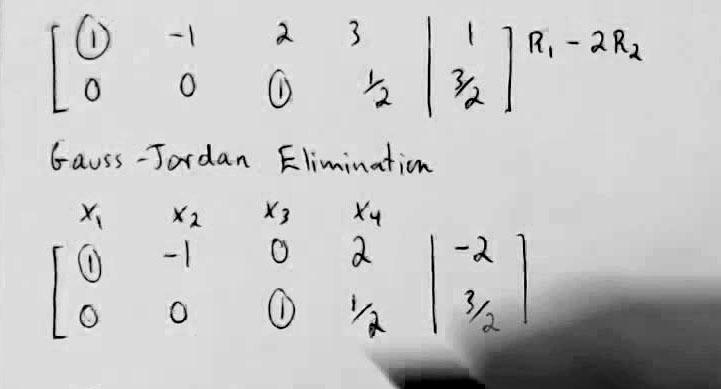 [ 1 -1 2 3 | 1 ] R₁ - 2R₂
[ 0 0 1 1/2 | 3/2 ]
Gauss-Jordan Elimination
x₁ x₂ x₃ x₄
[ 1 -1 0 2 | -2 ]
[ 0 0 1 1/2 | 3/2 ]